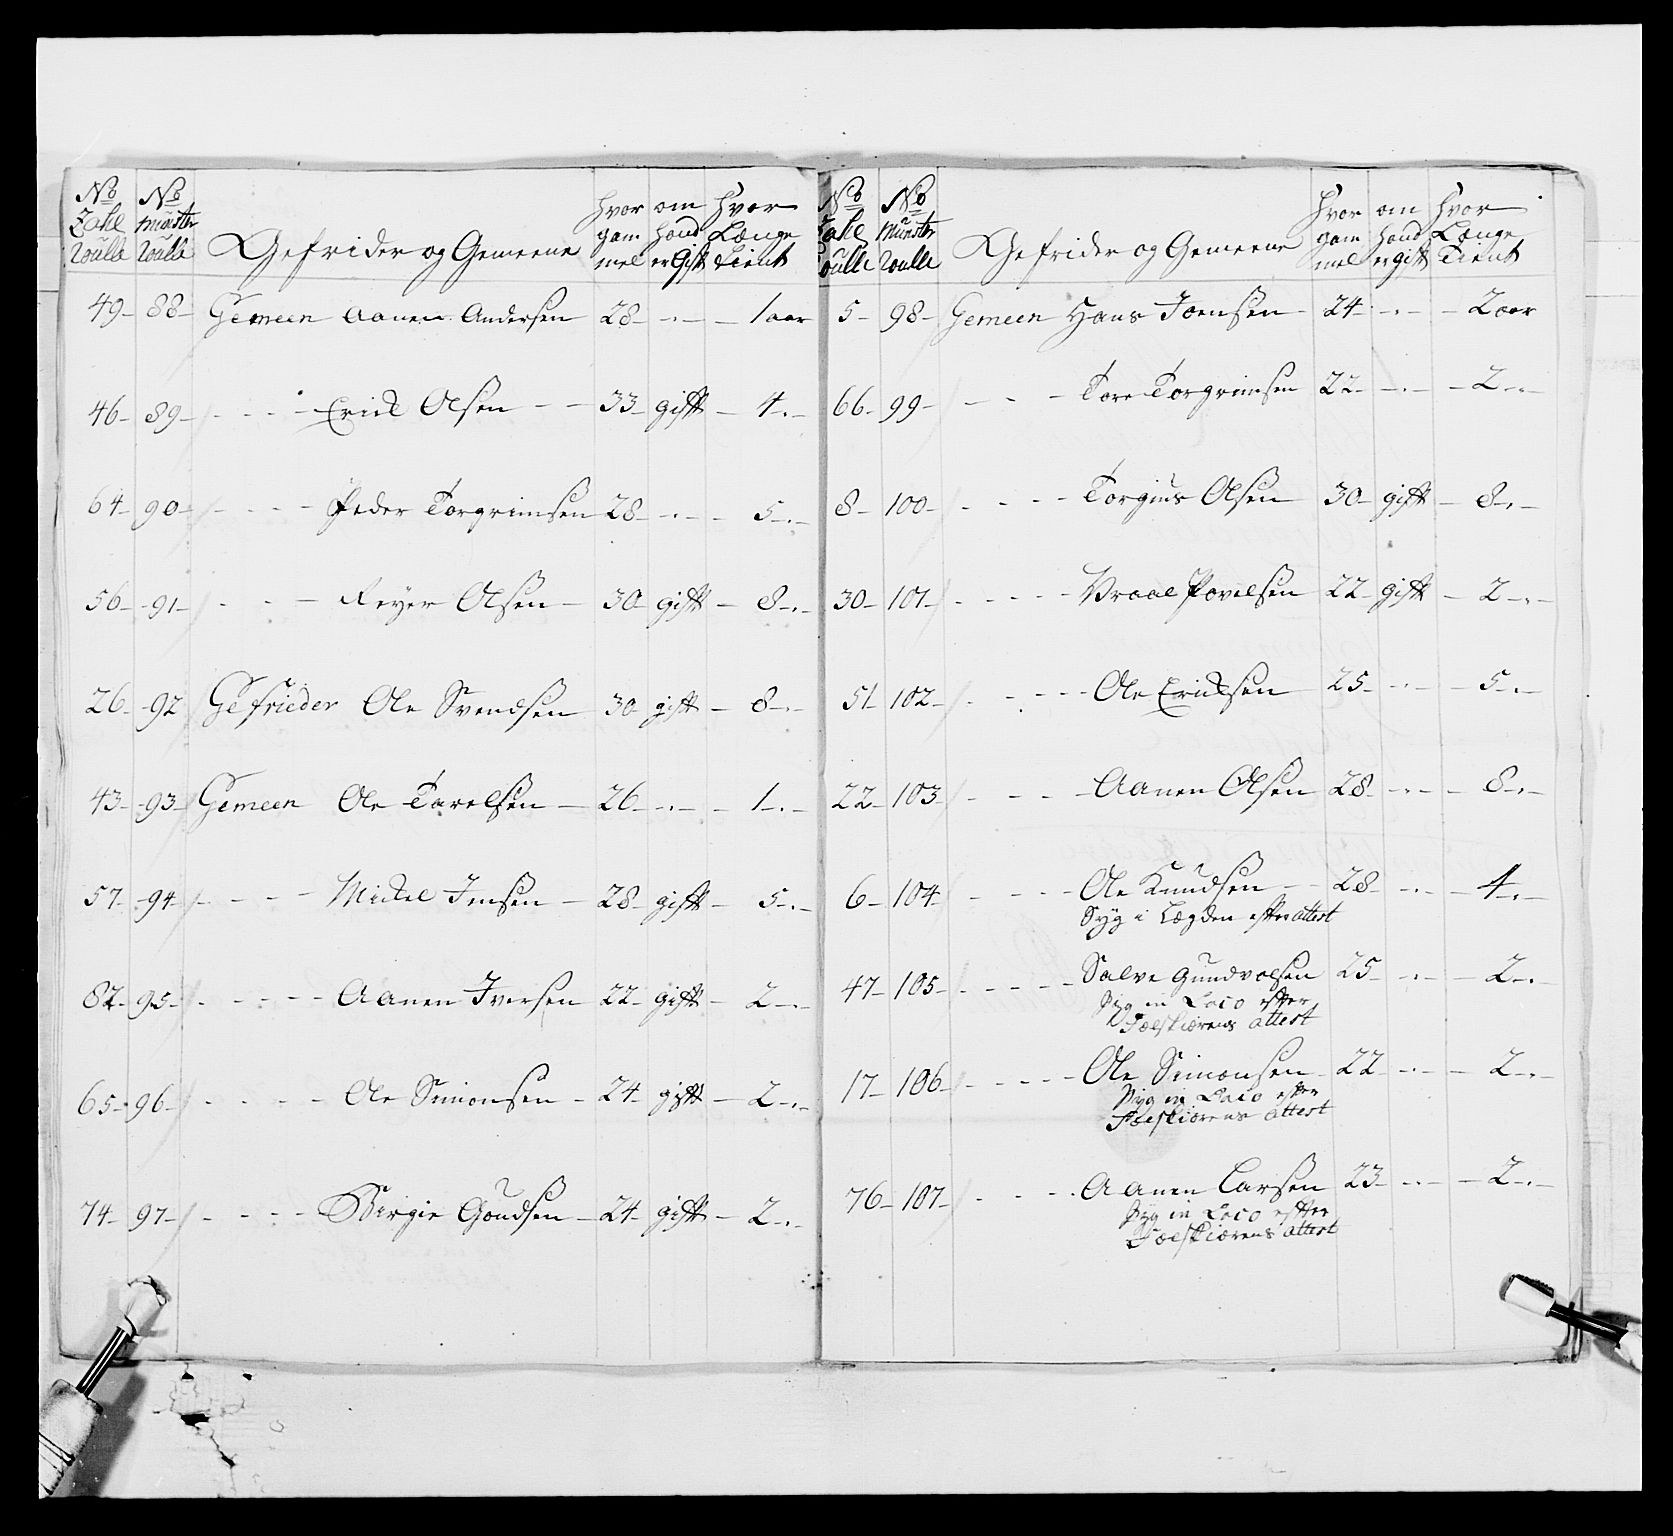 No No hvor om hvor
Zahl Münster gam hand Længe
Roulle Roulle Gefrider og Gemeene mel er Gift tient
49- 88- Gemeen Aanen Andersen 28- -.- - 1 aar
46- 89- - - - - Erick Olsen - - 33- gift - 4.-
64- 90- - - - - Peder Torgrimsen 28- -.- - 5-.-
56- 91- - - - - Reyer Olsen - 30- gift - 8-.-
26- 92 Gefrieder Ole Svendsen - 30- gift - 8-.-
43- 93- Gemeen Ole Tarelsen - 26- -.- - 1-.-
57- 94- - - - - Mickel Jensen - 28- gift - 5-.-
82- 95- - - - - Aanen Iversen - 22- gift - 2-.-
65- 96- - - - - Ole Simonsen - 24- gift - 2-.-
74- 97- - - - - Birgie Goudsen - 24- gift - 2-.-
No No hvor om hvor
Zahl Münster gam hand Længe
Roulle Roulle Gefrider og Gemeene mel er gift Tient
5- 98- Gemeen Hans Joensen - 24- -.- - 2 aar
66- 99- - - - Tore Torgrimsen 22- -.- - 2-.-
8- 100- - - - - Torgius Olsen 30- gift - 8-.-
30- 101- - - - - Vraal Povelsen 22- gift - 2-.-
51- 102- - - - - Ole Ericksen - 25- -.- - 5.-
22- 103- - - - - Aanen Olsen 28- -.- - 8-.-
6- 104- - - - Ole Knudsen - - 28- -.- - 4-.-
Syg i Lægden efter attest
47- 105- - - - - Salve Gundvolsen 25- -.- - 2-.-
Syg in Loco efter
Feltskiærens attest
17- 106- - - - - Ole Simonsen - 22- -.- - 2-.-
Syg in Loco efter
Feltskiærens attest
76- 107- - - - - Aanen Larsen 23- -.- - 2-.-
Syg in Loco efter
Feltskiærens attest